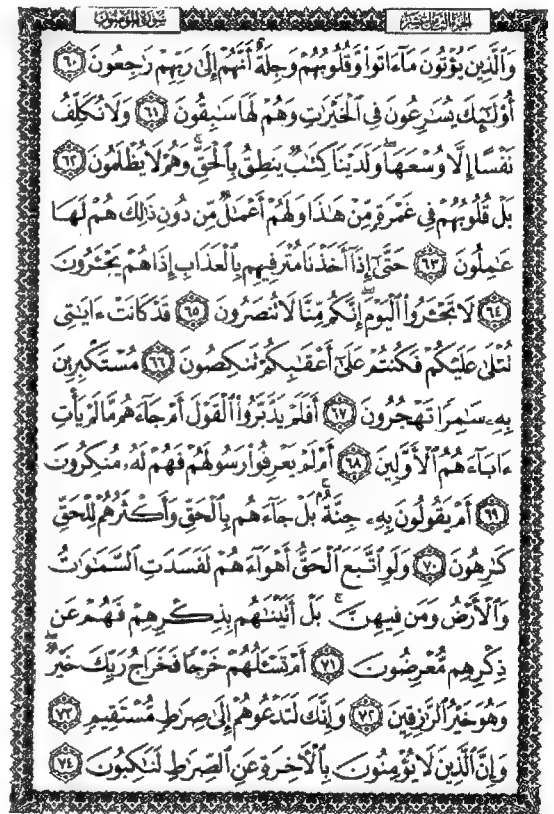 سورة المؤمنون الجزء الثامن عشر
وَالَّذِينَ يُؤْتُونَ مَا ءَاتَوا۟ وَّقُلُوبُهُمْ وَجِلَةٌ أَنَّهُمْ إِلَىٰ رَبِّهِمْ رَٰجِعُونَ ٦٠
أُو۟لَٰٓئِكَ يُسَٰرِعُونَ فِى ٱلْخَيْرَٰتِ وَهُمْ لَهَا سَٰبِقُونَ ٦١ وَلَا نُكَلِّفُ
نَفْسًا إِلَّا وُسْعَهَا وَلَدَيْنَا كِتَٰبٌ يَنطِقُ بِٱلْحَقِّ وَهُمْ لَا يُظْلَمُونَ ٦٢
بَلْ قُلُوبُهُمْ فِى غَمْرَةٍ مِّنْ هَٰذَا وَلَهُمْ أَعْمَٰلٌ مِّن دُونِ ذَٰلِكَ هُمْ لَهَا
عَٰمِلُونَ ٦٣ حَتَّىٰٓ إِذَآ أَخَذْنَا مُتْرَفِيهِم بِٱلْعَذَابِ إِذَا هُمْ يَجْـَٔرُونَ
٦٤ لَا تَجْـَٔرُوا۟ ٱلْيَوْمَ إِنَّكُم مِّنَّا لَا تُنصَرُونَ ٦٥ قَدْ كَانَتْ ءَايَٰتِى
تُتْلَىٰ عَلَيْكُمْ فَكُنتُمْ عَلَىٰٓ أَعْقَٰبِكُمْ تَنكِصُونَ ٦٦ مُسْتَكْبِرِينَ
بِهِۦ سَٰمِرًا تَهْجُرُونَ ٦٧ أَفَلَمْ يَدَّبَّرُوا۟ ٱلْقَوْلَ أَمْ جَآءَهُم مَّا لَمْ يَأْتِ
ءَابَآءَهُمُ ٱلْأَوَّلِينَ ٦٨ أَمْ لَمْ يَعْرِفُوا۟ رَسُولَهُمْ فَهُمْ لَهُۥ مُنكِرُونَ
٦٩ أَمْ يَقُولُونَ بِهِۦ جِنَّةٌۢ بَلْ جَآءَهُم بِٱلْحَقِّ وَأَكْثَرُهُمْ لِلْحَقِّ
كَٰرِهُونَ ٧٠ وَلَوِ ٱتَّبَعَ ٱلْحَقُّ أَهْوَآءَهُمْ لَفَسَدَتِ ٱلسَّمَٰوَٰتُ
وَٱلْأَرْضُ وَمَن فِيهِنَّ بَلْ أَتَيْنَٰهُم بِذِكْرِهِمْ فَهُمْ عَن
ذِكْرِهِم مُّعْرِضُونَ ٧١ أَمْ تَسْـَٔلُهُمْ خَرْجًا فَخَرَاجُ رَبِّكَ خَيْرٌ
وَهُوَ خَيْرُ ٱلرَّٰزِقِينَ ٧٢ وَإِنَّكَ لَتَدْعُوهُمْ إِلَىٰ صِرَٰطٍ مُّسْتَقِيمٍ ٧٣
وَإِنَّ ٱلَّذِينَ لَا يُؤْمِنُونَ بِٱلْءَاخِرَةِ عَنِ ٱلصِّرَٰطِ لَنَٰكِبُونَ ٧٤